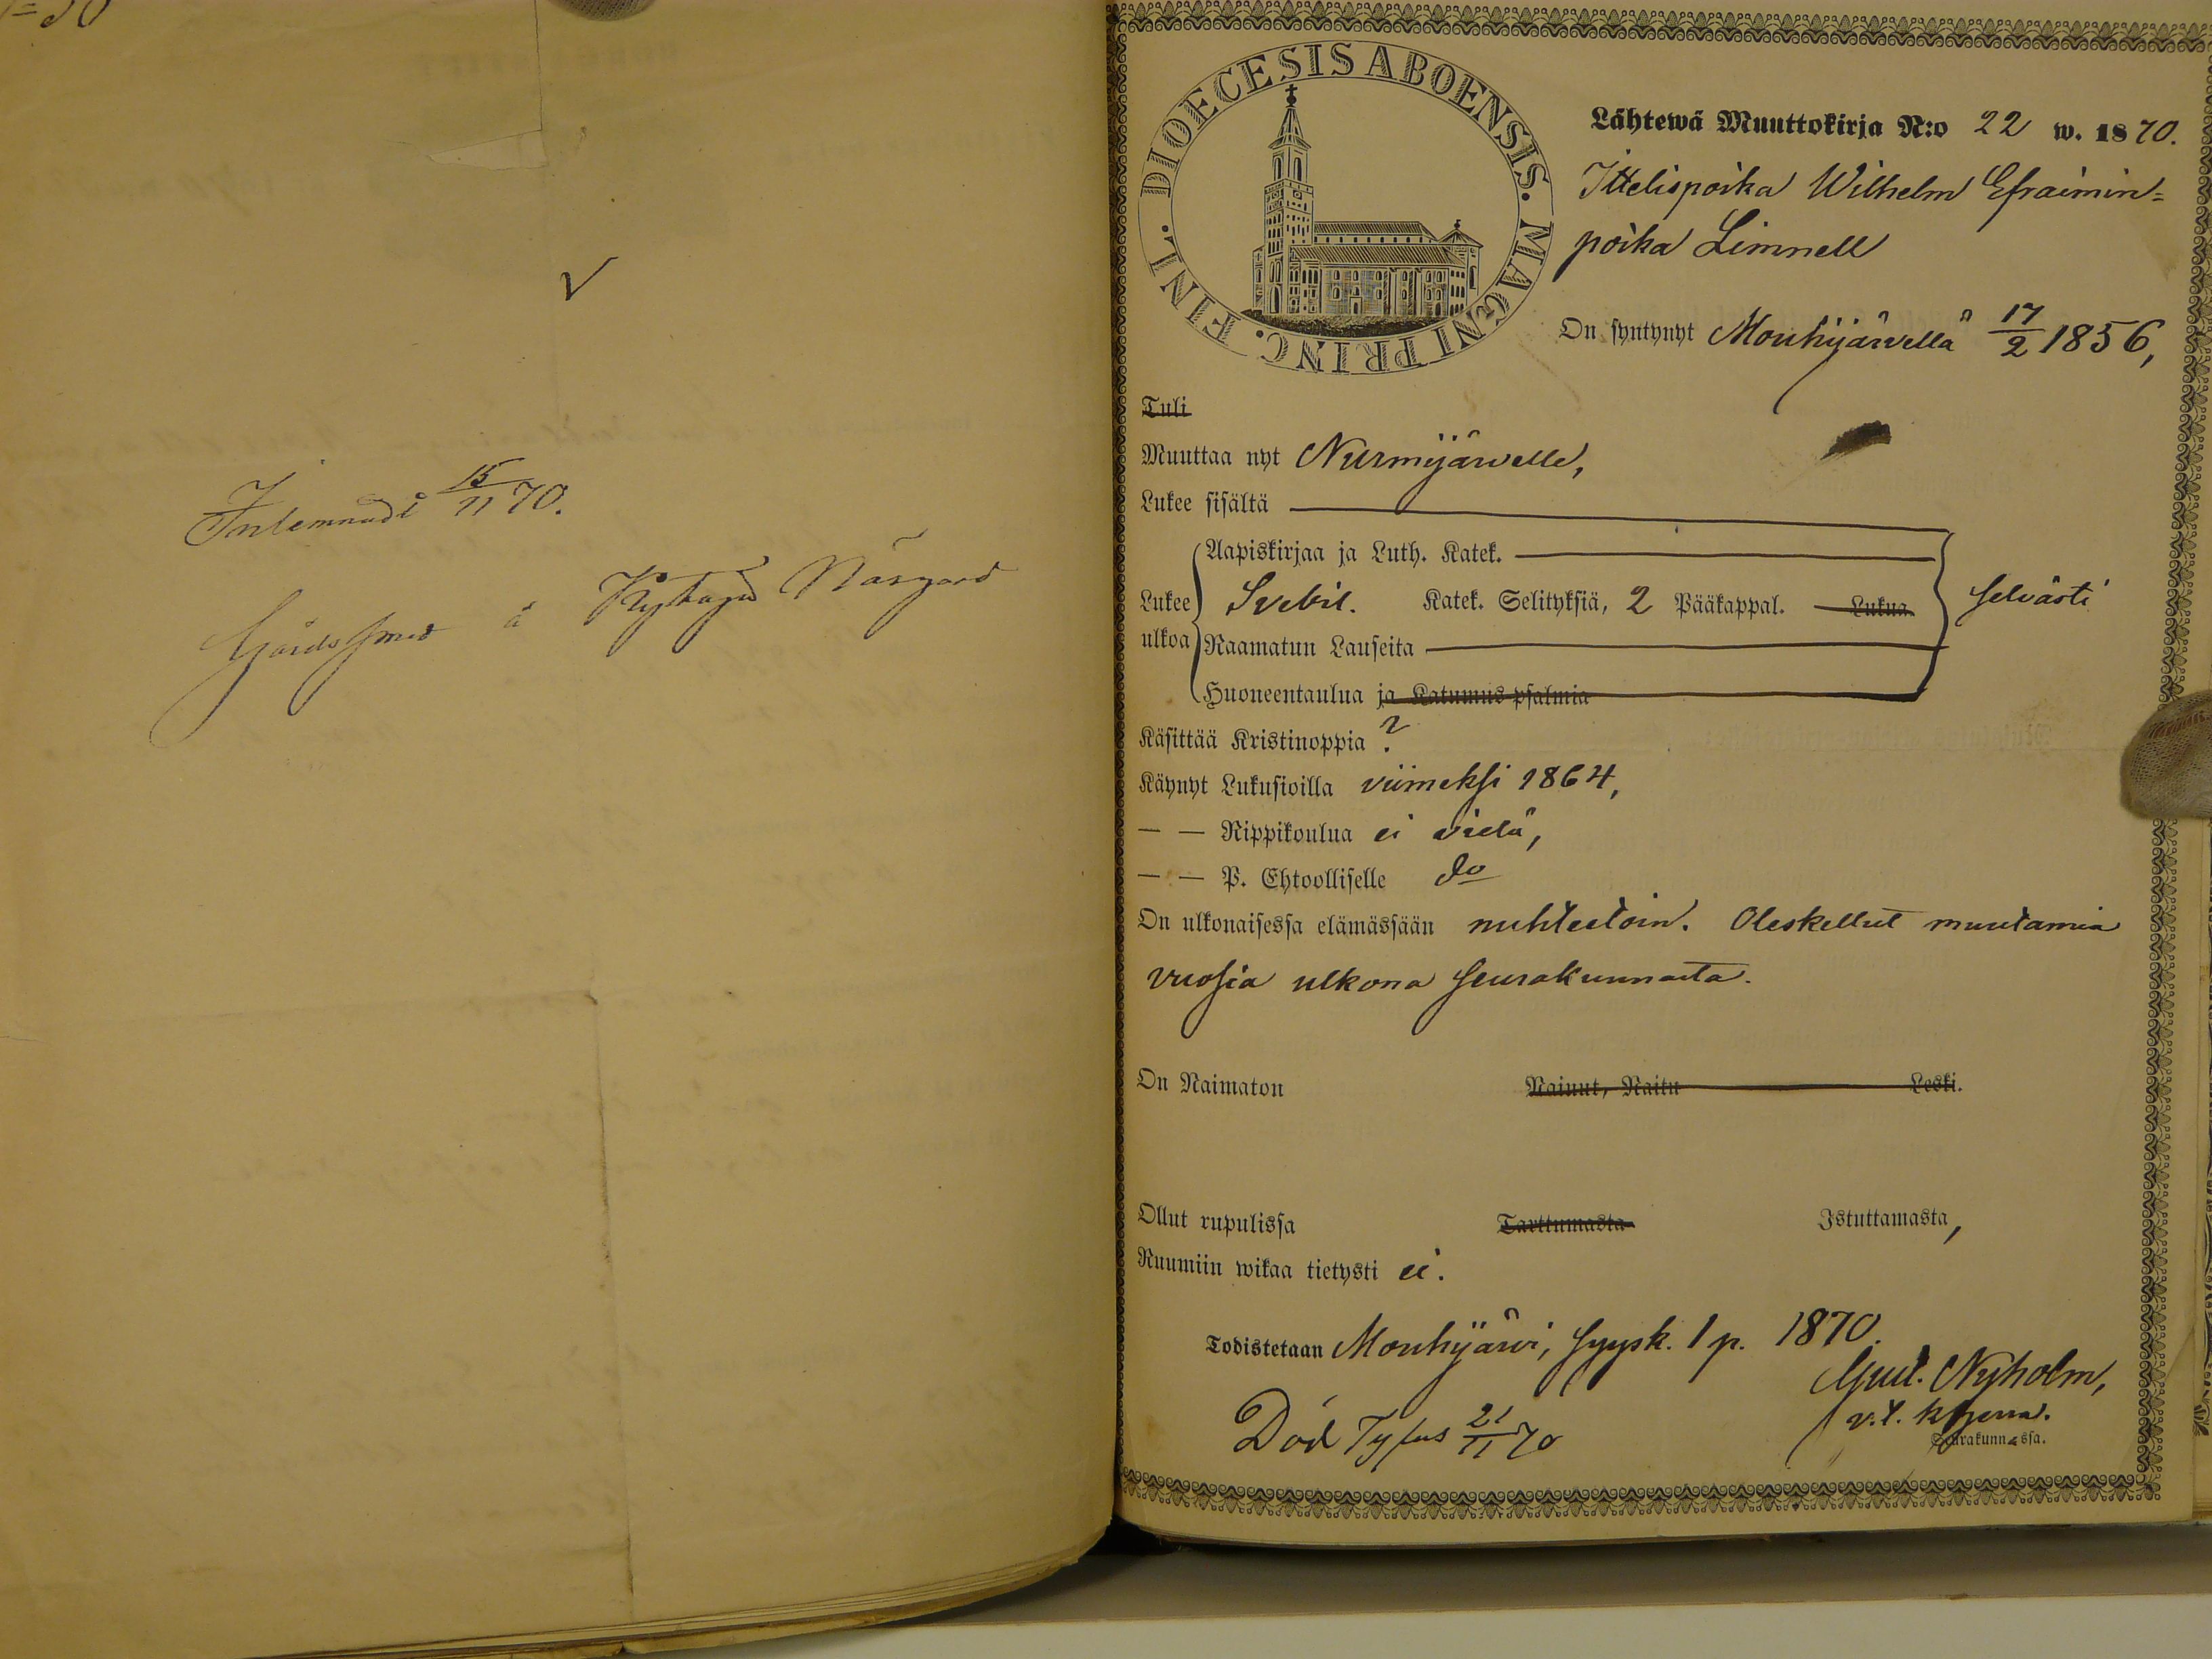 Inlemnadt 15/11 70.
Gårdssmed å Kytäjä Näsgård
DIOECESIS ABOENSIS. MAGNI PRINC. FINL.
Lähtewä Muuttokirja N:o 22 w. 1870.
Ittelispoika Wilhelm Efraimin=
poika Limnell
On syntynyt Mouhijärvellä 17/2 1856,
Tuli
Muuttaa nyt Nurmijärvelle,
Lukee sisältä
Aapiskirjaa ja Luth. Katek.
Lukee Svebil. Katek. Selityksiä, 2 Pääkappal. Lukua selvästi
ulkoa Raamatun Lauseita
Huoneentaulua ja Katumus-psalmia
Käsittää Kristinoppia ?
Käynyt Lukusioilla viimeksi 1864,
— — Rippikoulua ei vielä,
— — P. Ehtoolliselle do
On ulkonaisessa elämässään nuhteetoin. Oleskellut muutamia
vuosia ulkona seurakunnasta.
On Naimaton Nainut, Naitu Leski.
Ollut rupulissa Tarttumasta Istuttamasta,
Ruumiin wikaa tietysti ei.
Todistetaan Mouhijärvi, syysk. 1 p. 1870.
Gust. Nyholm,
v.t. kherra.
Seurakunnassa.
Död Tyfus 21/11 70